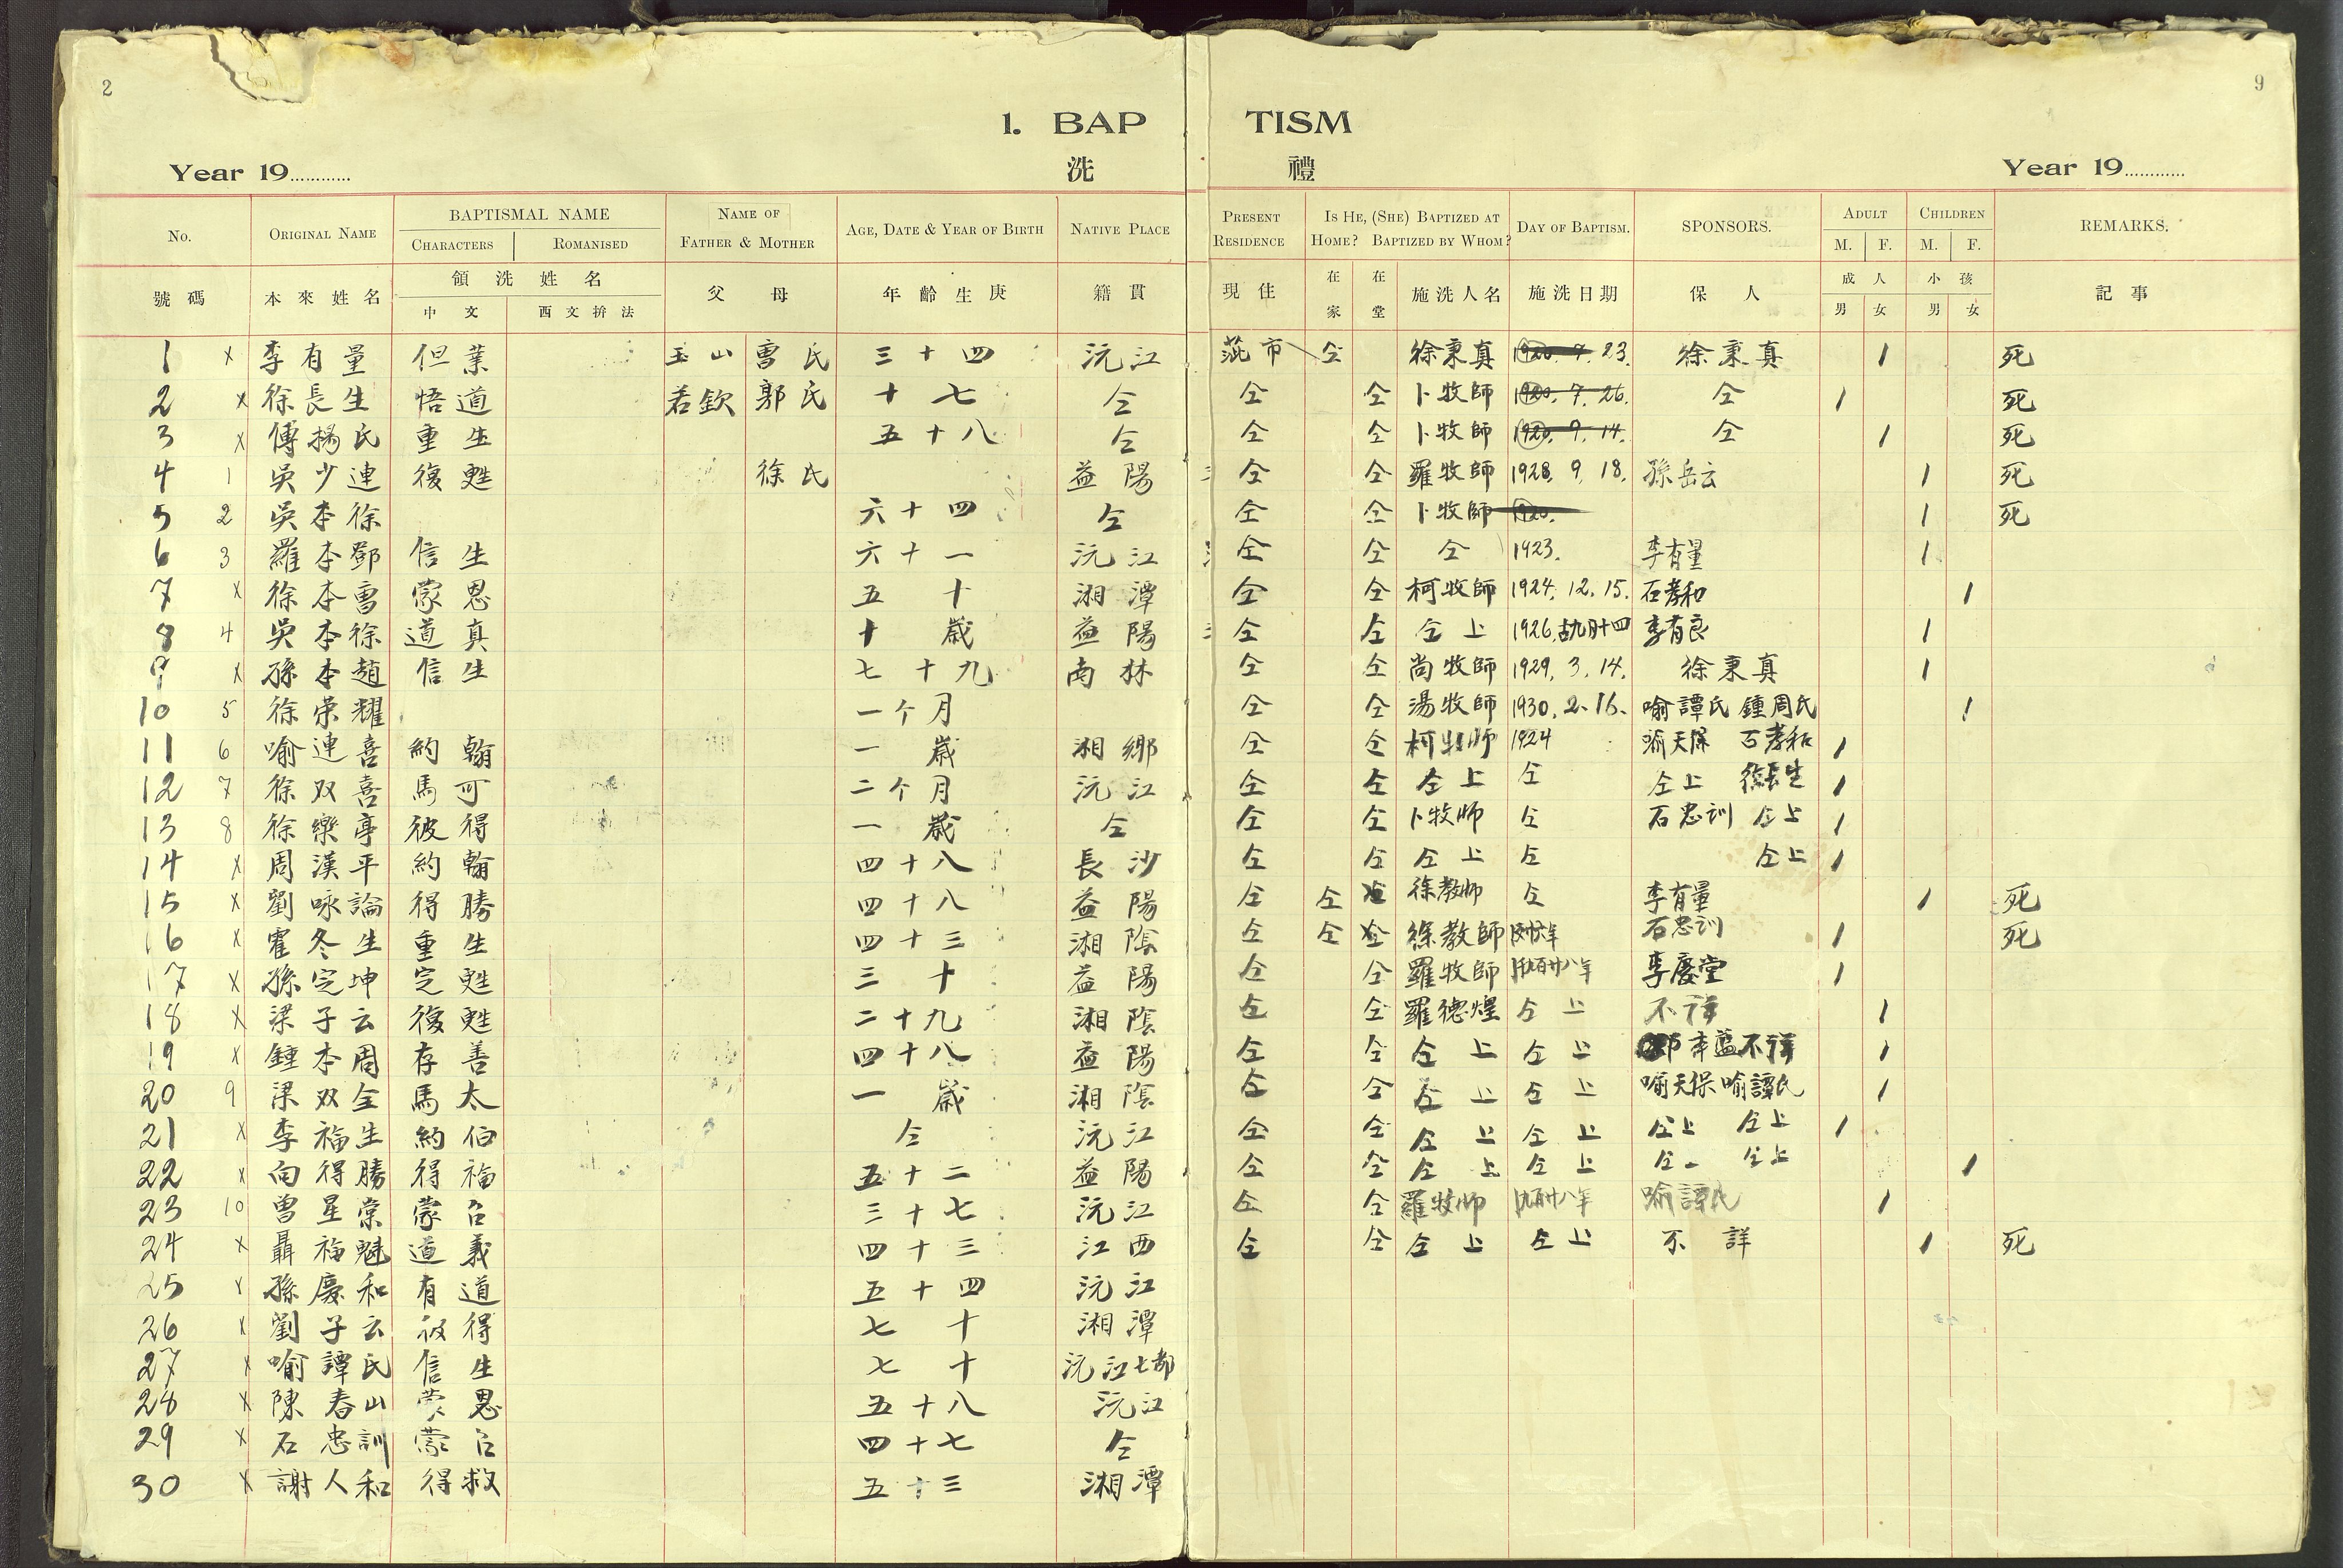 2
9
1. BAP TISM
Year 19............ 洗 禮 Year 19............
No. ORIGINAL NAME BAPTISMAL NAME CHARACTERS ROMANISED NAME OF FATHER & MOTHER AGE, DATE & YEAR OF BIRTH NATIVE PLACE PRESENT RESIDENCE IS HE, (SHE) BAPTIZED AT HOME? BAPTIZED BY WHOM? DAY OF BAPTISM. SPONSORS. ADULT M. F. CHILDREN M. F. REMARKS.
號碼 本來姓名 領洗姓名 中文 西文拚法 父母 年齡生庚 籍貫 現住 在家 在堂 施洗人名 施洗日期 保人 成人 男 女 小孩 男 女 記事
1 x 李有量 但業 玉山 曹氏 三十四 沅江 市 仝 徐秉真 1920. 7. 23. 徐秉真 1 死
2 x 徐長生 悟道 若欽 郭氏 十七 仝 仝 仝 卜牧師 1920. 7. 26. 仝 1 死
3 x 傅楊氏 重生 五十八 仝 仝 仝 卜牧師 1920. 9. 14. 仝 1 死
4 1 吳少連 復甦 徐氏 益陽 仝 仝 羅牧師 1928. 9. 18. 孫岳云 1 死
5 2 吳本徐 六十四 仝 仝 仝 卜牧師 1920. 1 死
6 3 羅本鄧 信生 六十一 沅江 仝 仝 仝 1923. 李有量 1
7 x 徐本曹 蒙恩 五十 湘潭 仝 仝 柯牧師 1924. 12. 15. 石孝和 1
8 4 吳本徐 道真 十歲 益陽 仝 仝 仝上 1926. 李有良 1
9 x 孫本趙 信生 七十九 南林 仝 仝 尚牧師 1929. 3. 14. 徐秉真 1
10 5 徐荣耀 一个月 仝 仝 湯牧師 1930. 2. 16. 喻譚氏 鍾周氏 1
11 6 喻連喜 約翰 一歲 湘鄉 仝 仝 柯牧师 1924 喻天保 石孝和 1
12 7 徐双喜 馬可 二个月 沅江 仝 仝 仝上 仝 仝上 徐長生 1
13 8 徐樂亭 彼得 一歲 仝 仝 仝 卜牧师 仝 石忠训 仝上 1
14 x 周漢平 約翰 四十八 長沙 仝 仝 仝上 仝 仝上 1
15 x 劉咏論 得勝 四十八 益陽 仝 仝 徐教师 仝 李有量 1 死
16 x 霍冬生 重生 四十三 湘陰 仝 仝 仝 徐教師 石忠训 1 死
17 x 孫定坤 定甦 三十 益陽 仝 仝 羅牧師 李慶堂 1
18 x 梁子云 復甦 二十九 湘陰 仝 仝 羅德煌 仝上 不详 1
19 x 鍾本周 存善 四十八 益陽 仝 仝 仝上 仝上 不详 1
20 9 梁双全 馬太 一歲 湘陰 仝 仝 仝上 仝上 喻天保 喻譚氏 1
21 x 李福生 約伯 仝 沅江 仝 仝 仝上 仝上 仝上 仝上 1
22 x 向得勝 得福 五十二 益陽 仝 仝 仝上 仝上 仝 仝上 1
23 10 曾星棠 蒙召 三十七 沅江 仝 仝 羅牧师 喻譚氏 1
24 x 聶福魁 道義 四十三 江西 仝 仝 仝上 仝上 不詳 1 死
25 x 孫慶和 有道 五十四 沅江
26 x 劉子云 彼得 七十 湘潭
27 x 喻譚氏 信生 七十 沅江七都
28 x 陳春山 蒙恩 五十八 沅江
29 x 石忠訓 蒙召 四十七 仝
30 x 謝人和 得救 五十三 湘潭